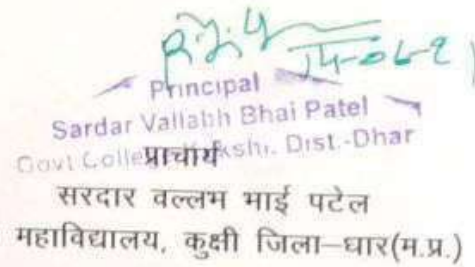 14-06-21
Principal
Sardar Vallabh Bhai Patel
Govt College Kukshi, Dist.-Dhar
प्राचार्य
सरदार वल्लभ भाई पटेल
महाविद्यालय, कुक्षी जिला–धार(म.प्र.)